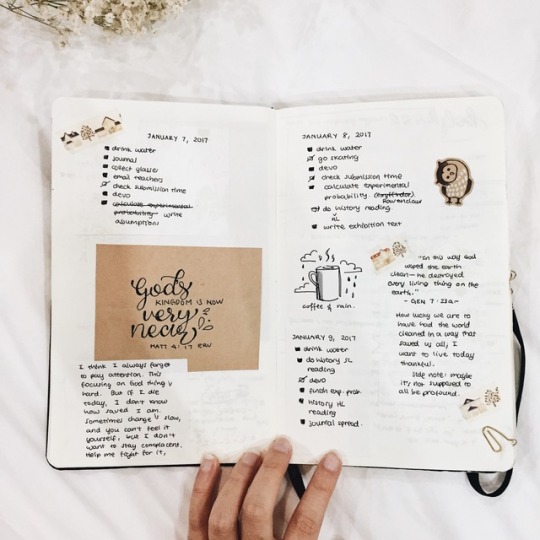 JANUARY 7, 2017
drink water
journal
collect glasses
email teachers
check submission time
devo
calculate experimental
probability write
assumption
God's
KINGDOM IS NOW
very
near
MATT 4:17 ERV
I think I always forget
to pay attention. This
focusing on God thing's
hard. But if I die
today, I don't know
how saved I am.
Sometimes change's slow,
and you can't feel it
yourself, but I don't
want to stay complacent.
Help me fight for it,
JANUARY 8, 2017
drink water
go skating
devo
check submission time
calculate experimental
probability
Ravenclaw
do history reading
write exhibition text
"In this way God
wiped the earth
clean—he destroyed
every living thing on the
earth."
- GEN 7:23a-
How lucky we are to
have had the world
cleansed in a way that
saved us all; I
want to live today
thankful.
side note: maybe
it's not supposed to
all be profound.
coffee & rain.
JANUARY 9, 2017
drink water
do history SL
reading
devo
finish exp. prob.
history HL
reading
journal spread.